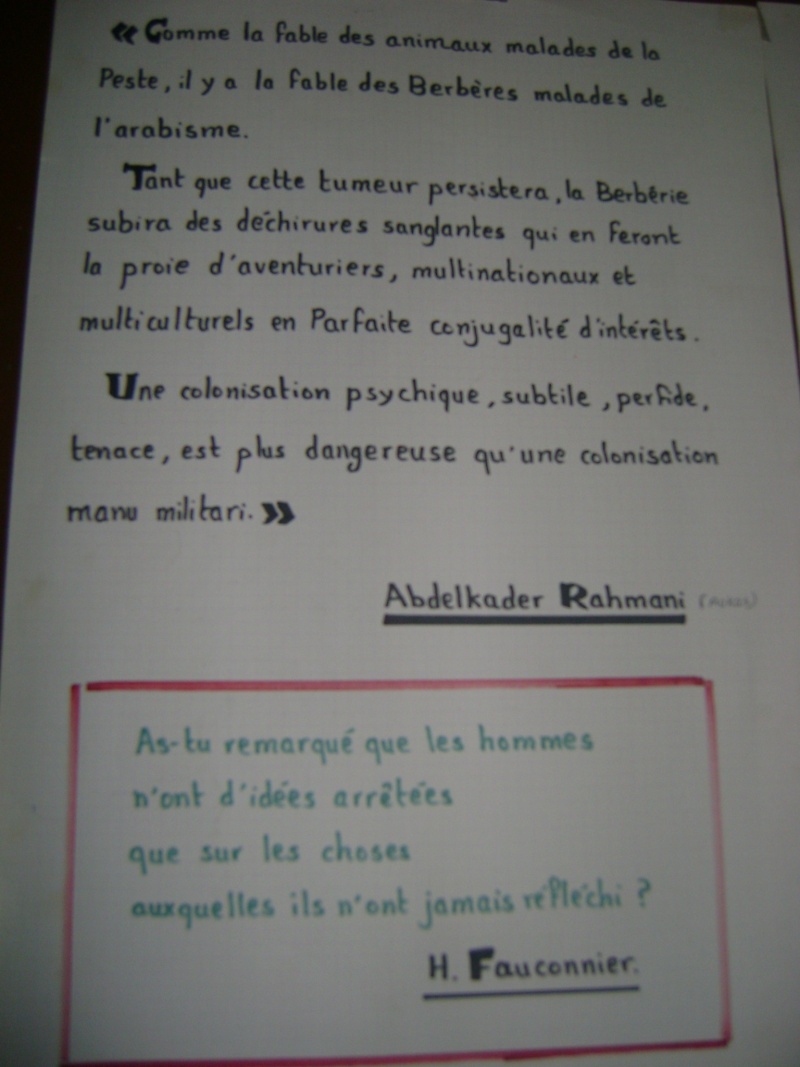 « Comme la fable des animaux malades de la
Peste, il y a la fable des Berbères malades de
l'arabisme.
Tant que cette tumeur persistera, la Berbérie
subira des déchirures sanglantes qui en feront
la proie d'aventuriers, multinationaux et
multiculturels en Parfaite conjugalité d'intérêts.
Une colonisation psychique, subtile, perfide,
tenace, est plus dangereuse qu'une colonisation
manu militari. »
Abdelkader Rahmani
As-tu remarqué que les hommes
n'ont d'idées arrêtées
que sur les choses
auxquelles ils n'ont jamais réfléchi ?
H. Fauconnier.